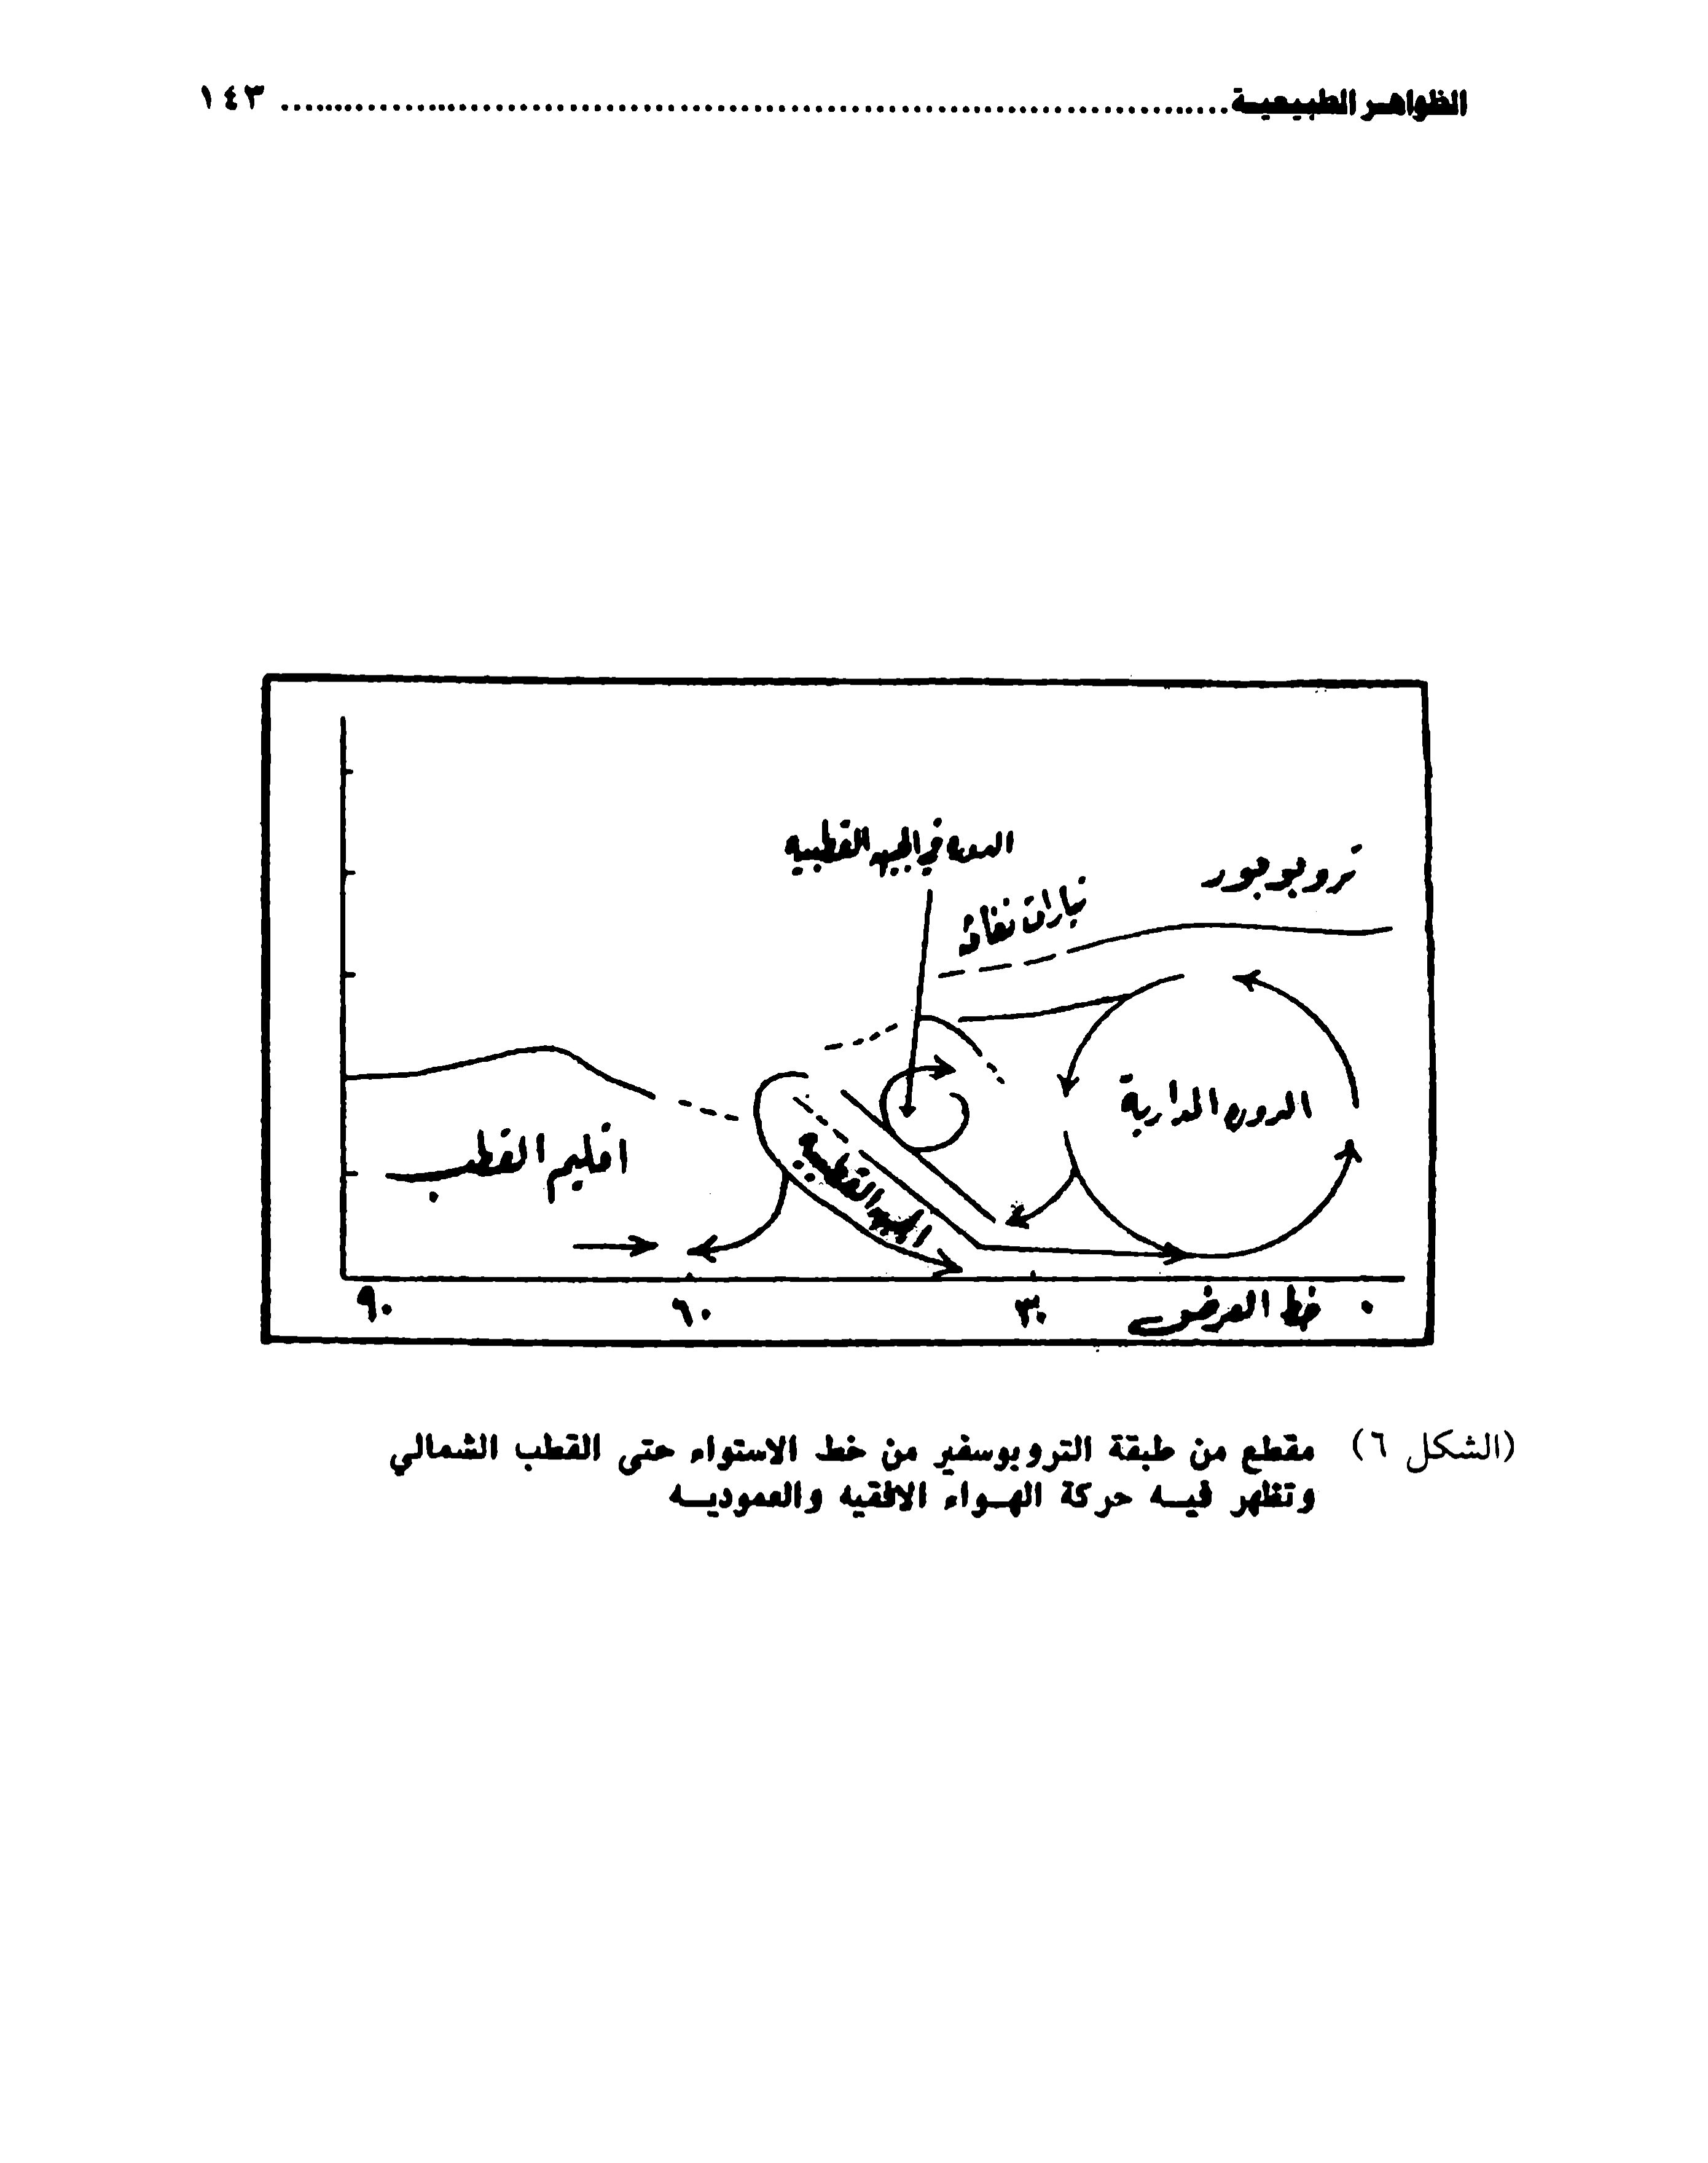 الظواهر الطبيعية ........ ١٤٣
القطبيه
تروبوبور
تيارات نفاثه
الدوره المدارية
اقليم القطب
القطبية
٩٠ ٦٠ ٣٠ خط العرض ٠
(الشكل ٦) مقطع من طبقة التروبوسفير من خط الاستواء حتى القطب الشمالي
وتظهر فيه حركة الهواء الافقيه والعموديه